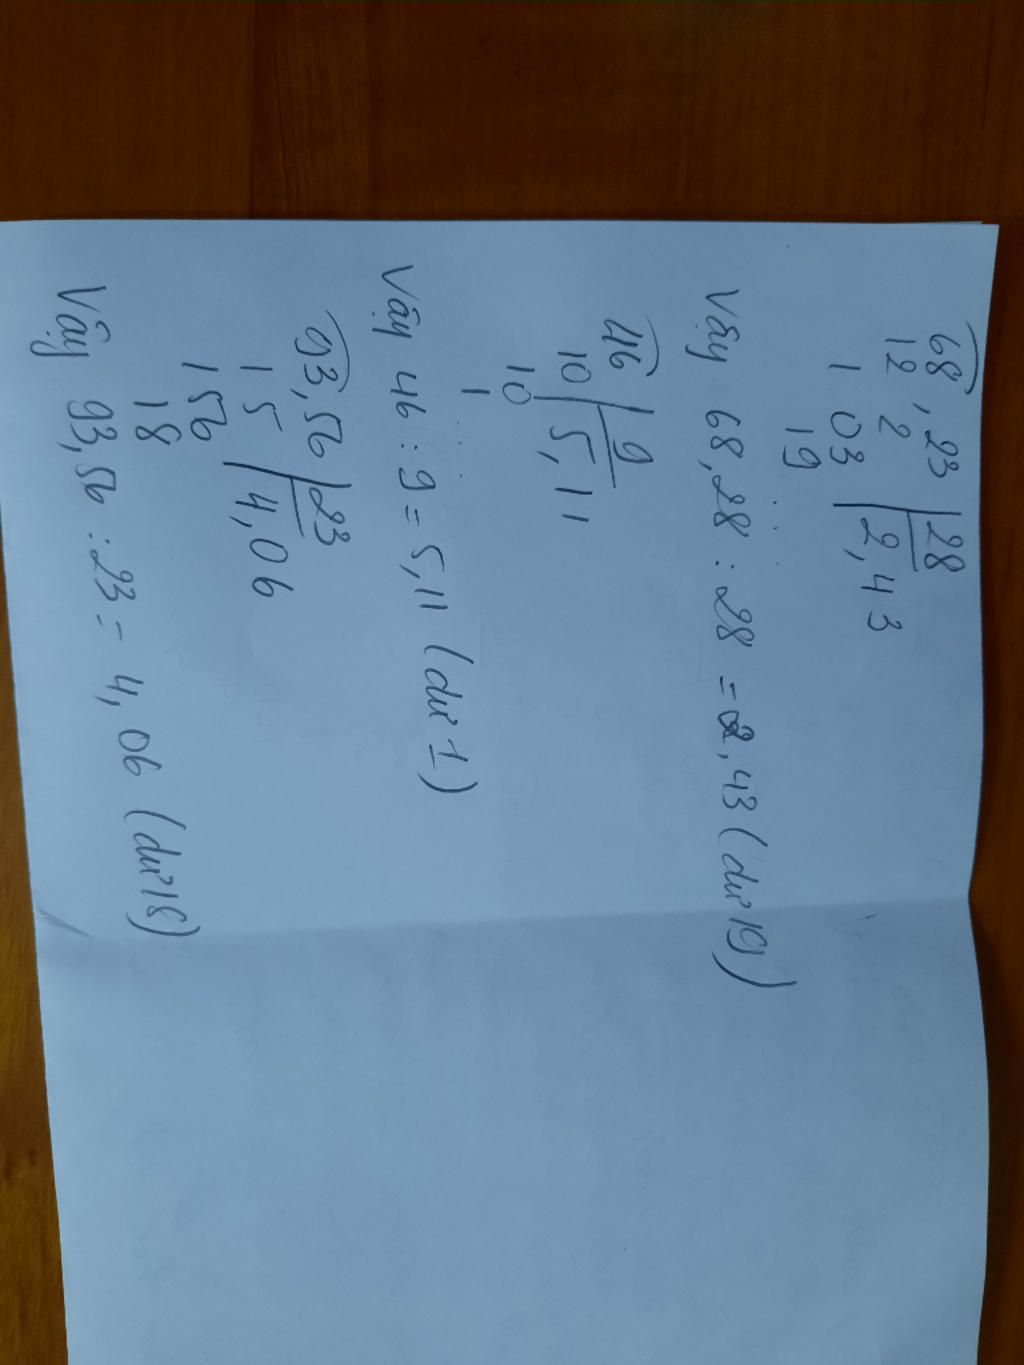 68,23 | 28
12 2 | 2,43
1 03
19
Vậy 68,28 : 28 = 2,43 (dư 19)
46 | 9
10 | 5,11
10
1
Vậy 46 : 9 = 5,11 (dư 1)
93,56 | 23
1 5 | 4,06
156
18
Vậy 93,56 : 23 = 4,06 (dư 18)